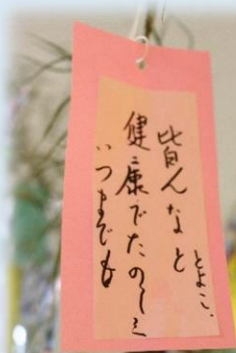 皆んなと
健康でたのしく
いつまでも
とよこ